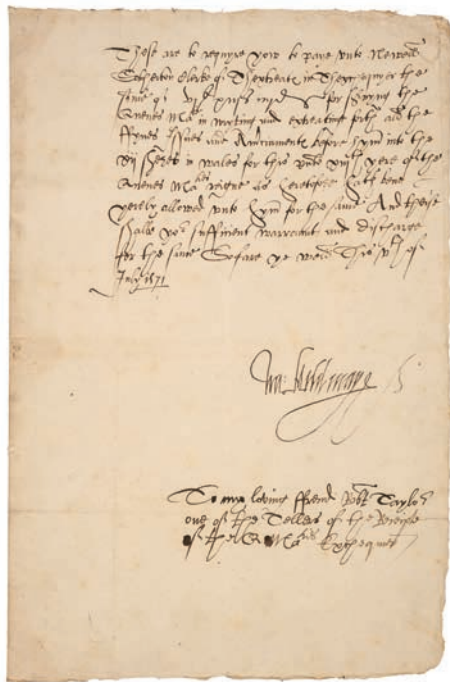 These are to requyre you to paye unto
Clerke of Thextreats in Thexchequer the
some of for serving the
Quenes Ma in wryting and extreating forth all the
ffynes Issues and Amerciaments before hym into the
xij Sheres in Wales for this yere of the
Quenes Ma reigne as heretofore hath bene
yerely allowed unto hym for the same And theise
shalbe your sufficient warrant and discharge
for the same So fare ye well This vth of
July 1571
Wa: Mildmaye
To my loving ffrend Robt Taylor
one of the Tellers of the Receipte
of the Q Mats Exchequer